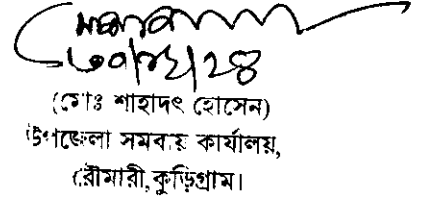 (মোঃ শাহাদৎ হোসেন)
উপজেলা সমবায় কার্যালয়,
রৌমারী, কুড়িগ্রাম।